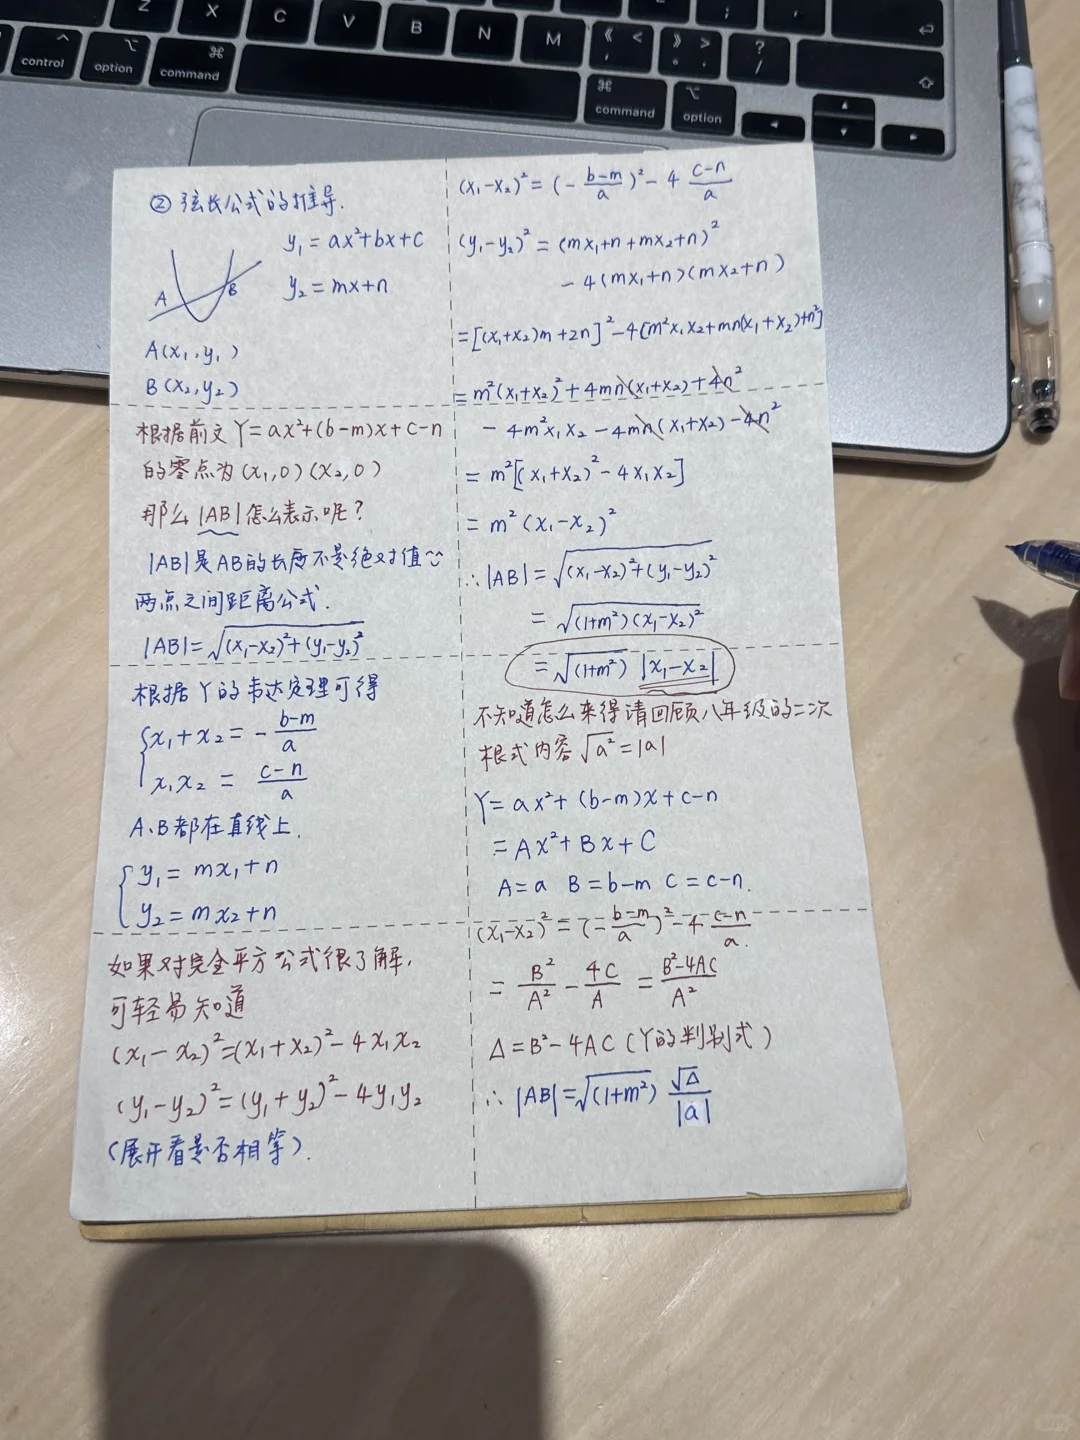 Z X C V B N M
《 <
， ,
》 >
。 .
?
/
;
control
option
command
command
option
② 弦长公式的推导.
y₁ = ax²+bx+c
y₂ = mx+n
A B
A(x₁,y₁)
B(x₂,y₂)
根据前文 Y=ax²+(b-m)x+c-n
的零点为(x₁,0)(x₂,0)
那么|AB|怎么表示呢?
|AB|是AB的长度不是绝对值
两点之间距离公式.
|AB|=√(x₁-x₂)²+(y₁-y₂)²
根据Y的韦达定理可得
{x₁+x₂ = - (b-m)/a
x₁x₂ = (c-n)/a
A、B都在直线上.
{y₁ = mx₁+n
y₂ = mx₂+n
如果对完全平方公式很了解,
可轻易知道
(x₁-x₂)²=(x₁+x₂)²-4x₁x₂
(y₁-y₂)²=(y₁+y₂)²-4y₁y₂
(展开看是否相等).
(x₁-x₂)²=(- (b-m)/a)²-4 (c-n)/a
(y₁-y₂)² = (mx₁+n+mx₂+n)²
-4(mx₁+n)(mx₂+n)
=[(x₁+x₂)m+2n]²-4[m²x₁x₂+mn(x₁+x₂)+n²]
= m²(x₁+x₂)²+4mn(x₁+x₂)+4n²
-4m²x₁x₂-4mn(x₁+x₂)-4n²
= m²[(x₁+x₂)²-4x₁x₂]
= m²(x₁-x₂)²
∴|AB|=√(x₁-x₂)²+(y₁-y₂)²
=√(1+m²)(x₁-x₂)²
=√(1+m²) |x₁-x₂|
不知道怎么来得请回顾八年级的二次
根式内容√a²=|a|
Y=ax²+(b-m)x+c-n
=Ax²+Bx+C
A=a B=b-m C=c-n.
(x₁-x₂)²=(- (b-m)/a)²-4 (c-n)/a.
= B²/A² - 4C/A = (B²-4AC)/A²
Δ=B²-4AC(Y的判别式)
∴ |AB|=√(1+m²) √Δ/|a|